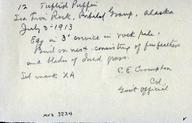 12 Tufted Puffin
Sea Lion Rock, Pribilof Group, Alaska
July 3-1913
Egg in 3' crevice in rock pile.
Built on nest consisting of feathers
and blades of dried grass.
Set mark XA
C. E. Crompton
Col.
Govt Official